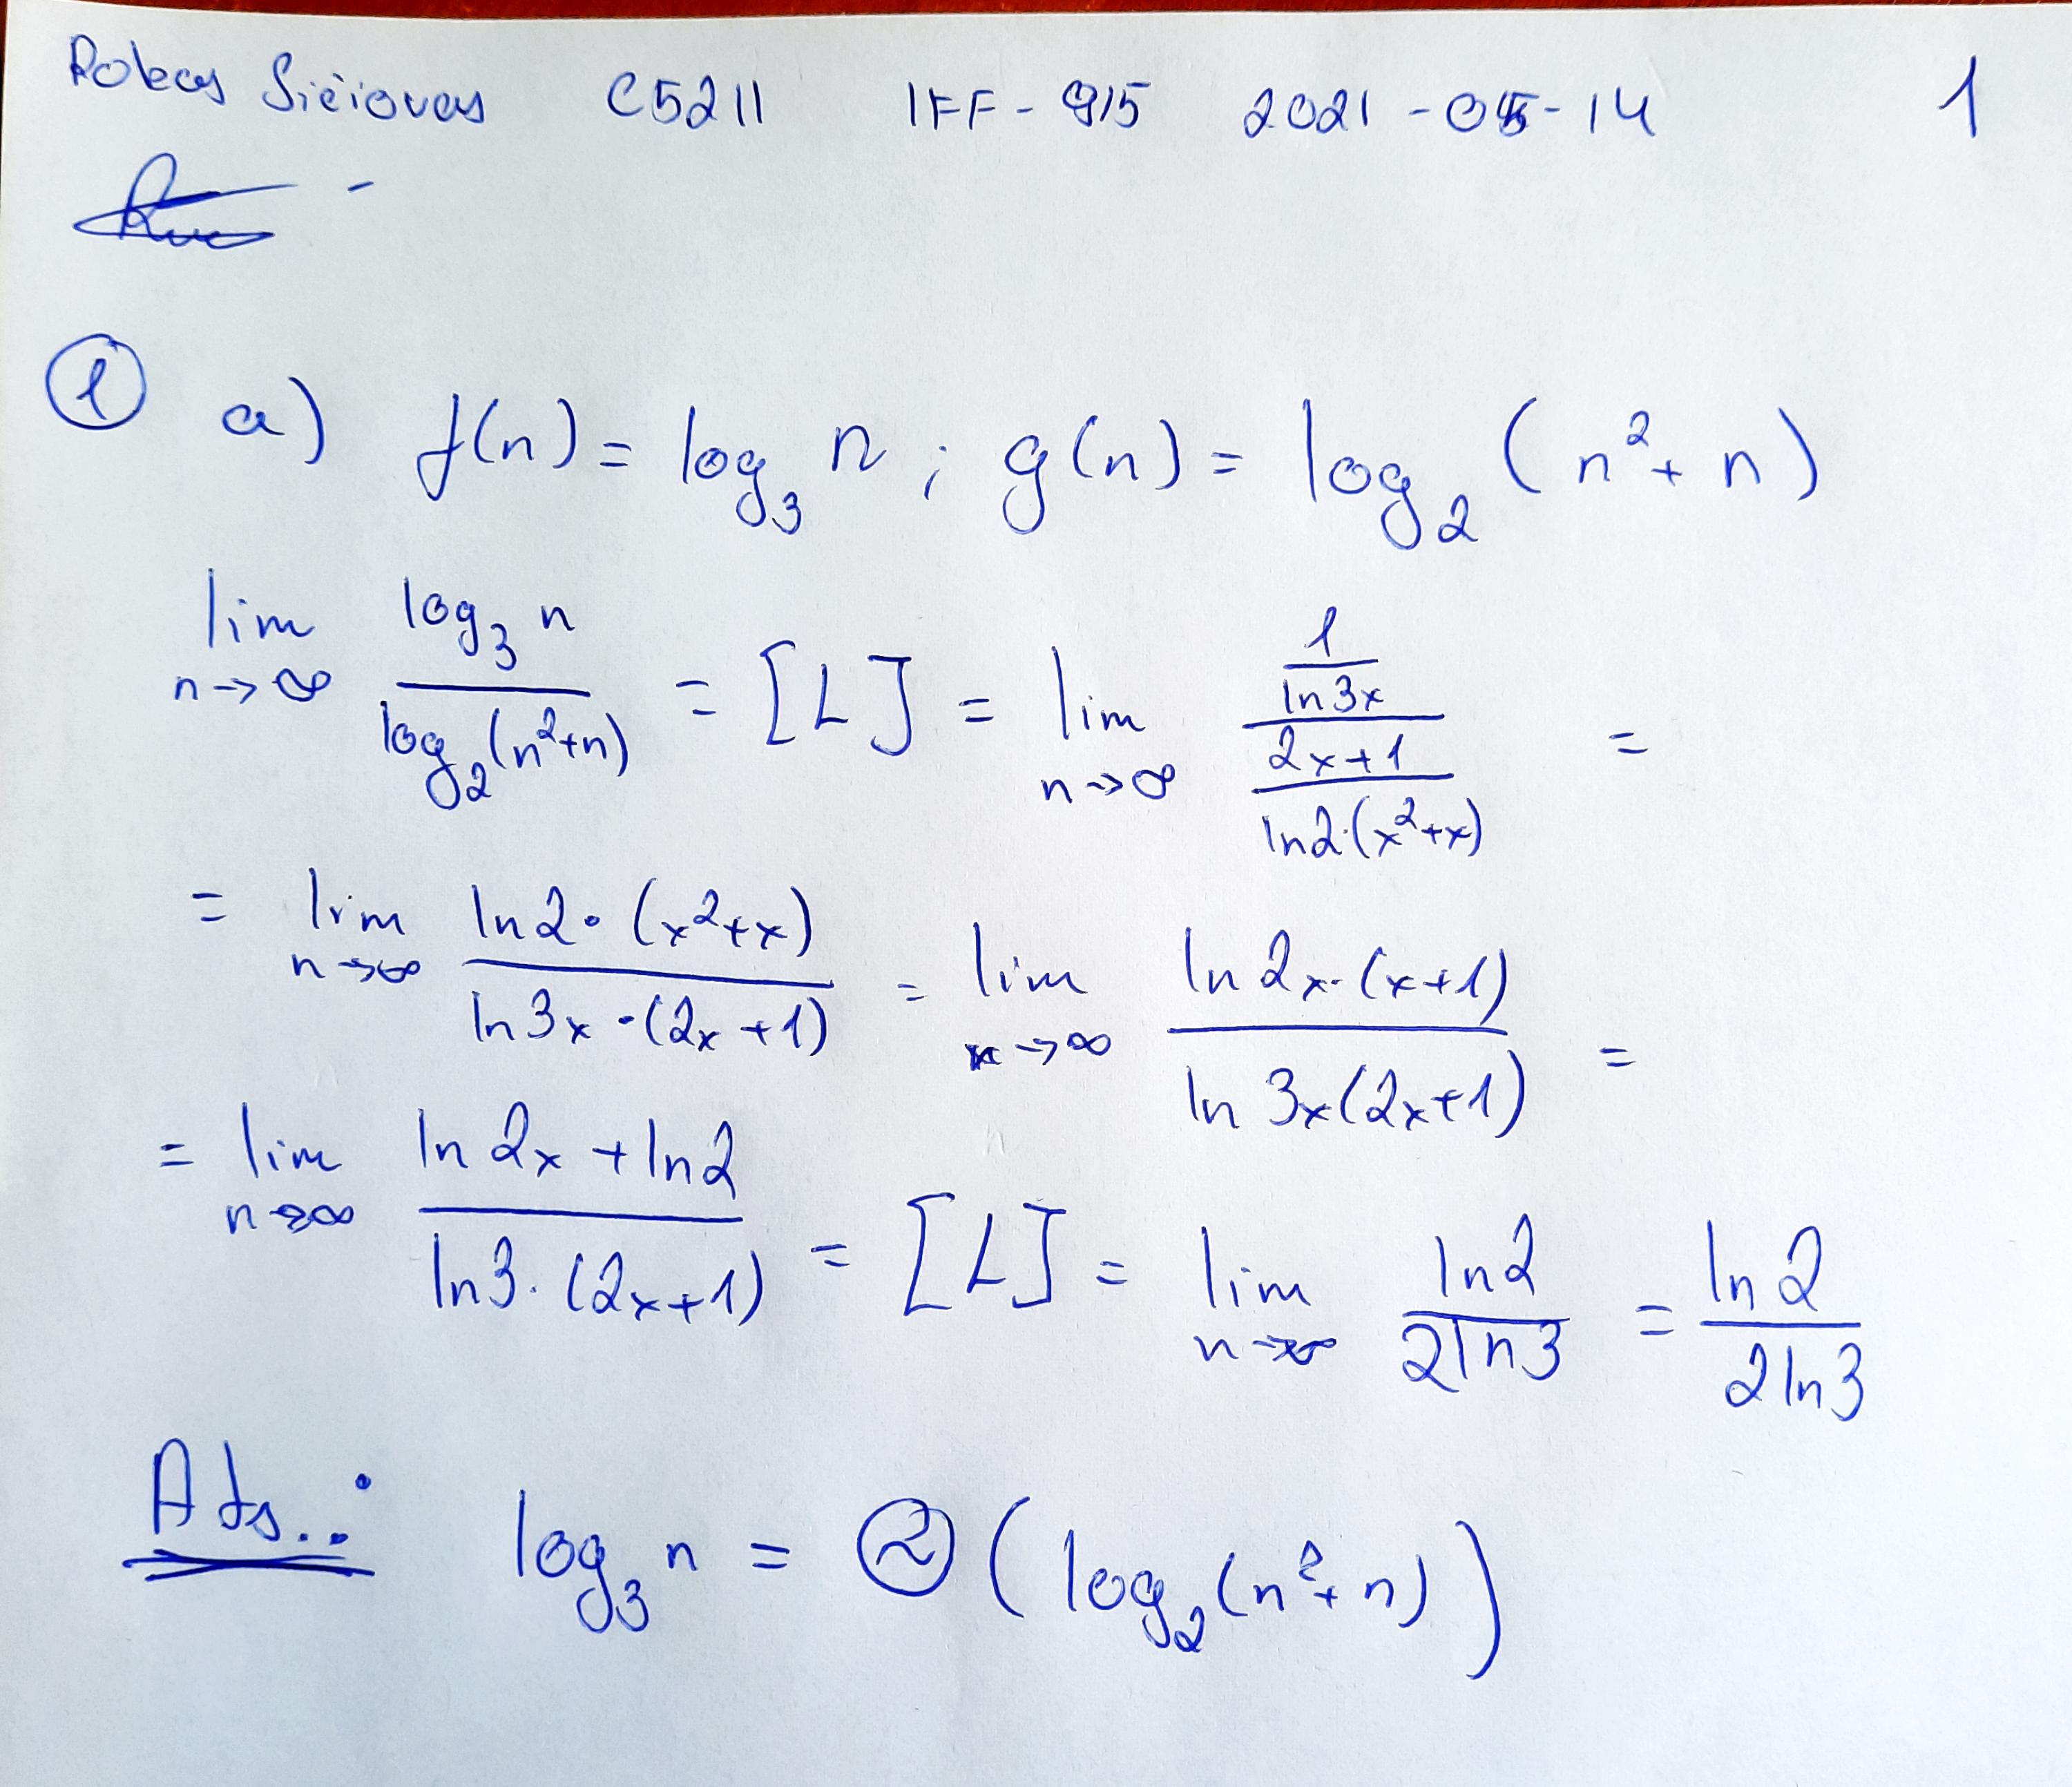 Rokas Šičiovas C5211 IFF-9/5 2021-05-14 1
① a) f(n) = log₃ n ; g(n) = log₂ (n² + n)
lim n→∞ (log₃ n)/(log₂(n²+n)) = [L] = lim n→∞ (1/(ln3x))/((2x+1)/(ln2·(x²+x))) =
= lim n→∞ (ln2·(x²+x))/(ln3x·(2x+1)) = lim x→∞ (ln2x·(x+1))/(ln3x(2x+1)) =
= lim n→∞ (ln2x+ln2)/(ln3·(2x+1)) = [L] = lim n→∞ (ln2)/(2ln3) = (ln2)/(2ln3)
Ats.: log₃ n = Θ(log₂(n²+n))